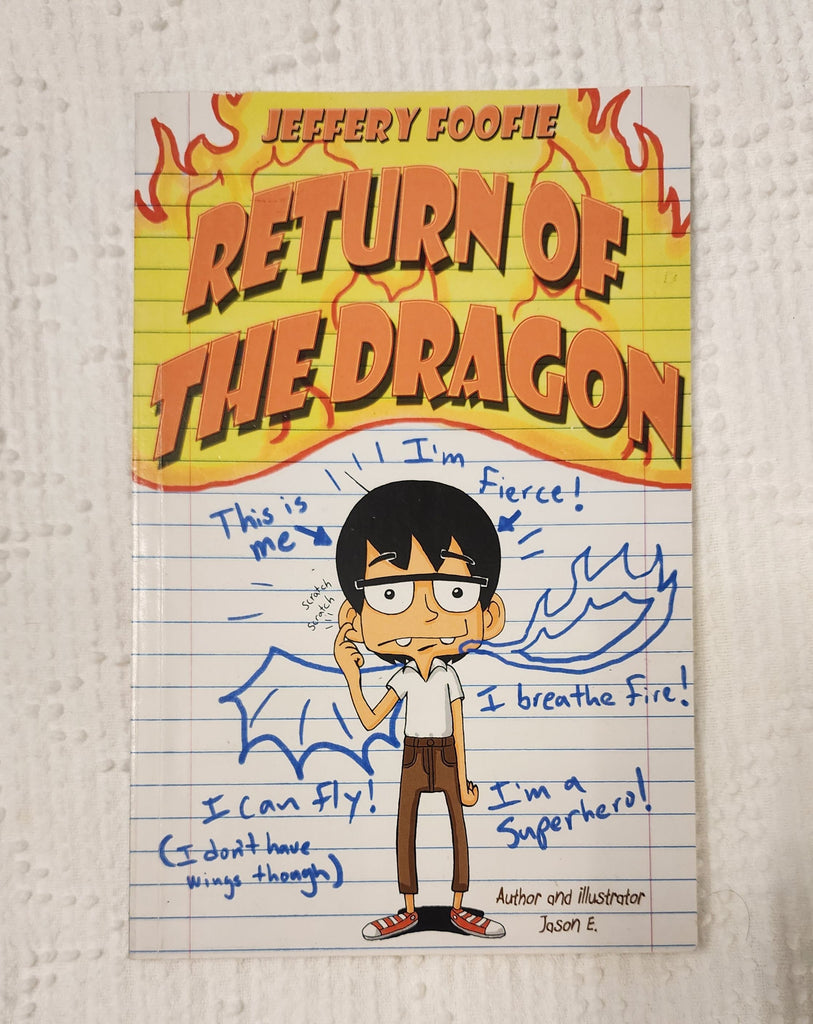 JEFFERY FOOFIE
RETURN OF
THE DRAGON
I'm
fierce!
This is
me
scratch
scratch
I breathe fire!
I can fly!
(I don't have
wings though)
I'm a
Superhero!
Author and illustrator
Jason E.